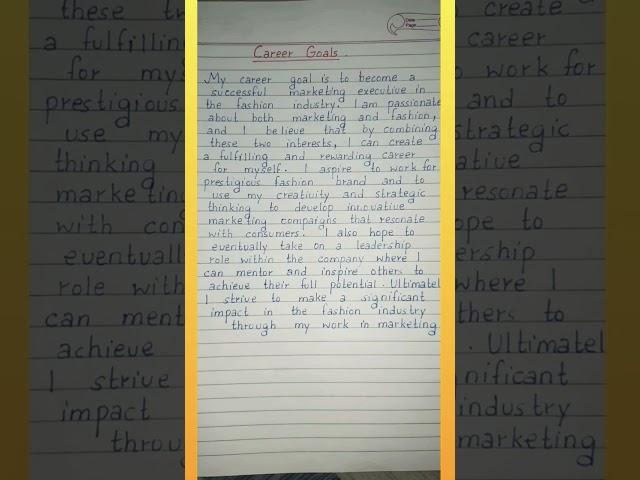 Date
Page
Career Goals.
My career goal is to become a
successful marketing executive in
the fashion industry. I am passionate
about both marketing and fashion,
and I believe that by combining
these two interests, I can create
a fulfilling and rewarding career
for myself. I aspire to work for
prestigious fashion brand and to
use my creativity and strategic
thinking to develop innovative
marketing compaigns that resonate
with consumers. I also hope to
eventually take on a leadership
role within the company where I
can mentor and inspire others to
achieve their full potential. Ultimatel
I strive to make a significant
impact in the fashion industry
through my work in marketing